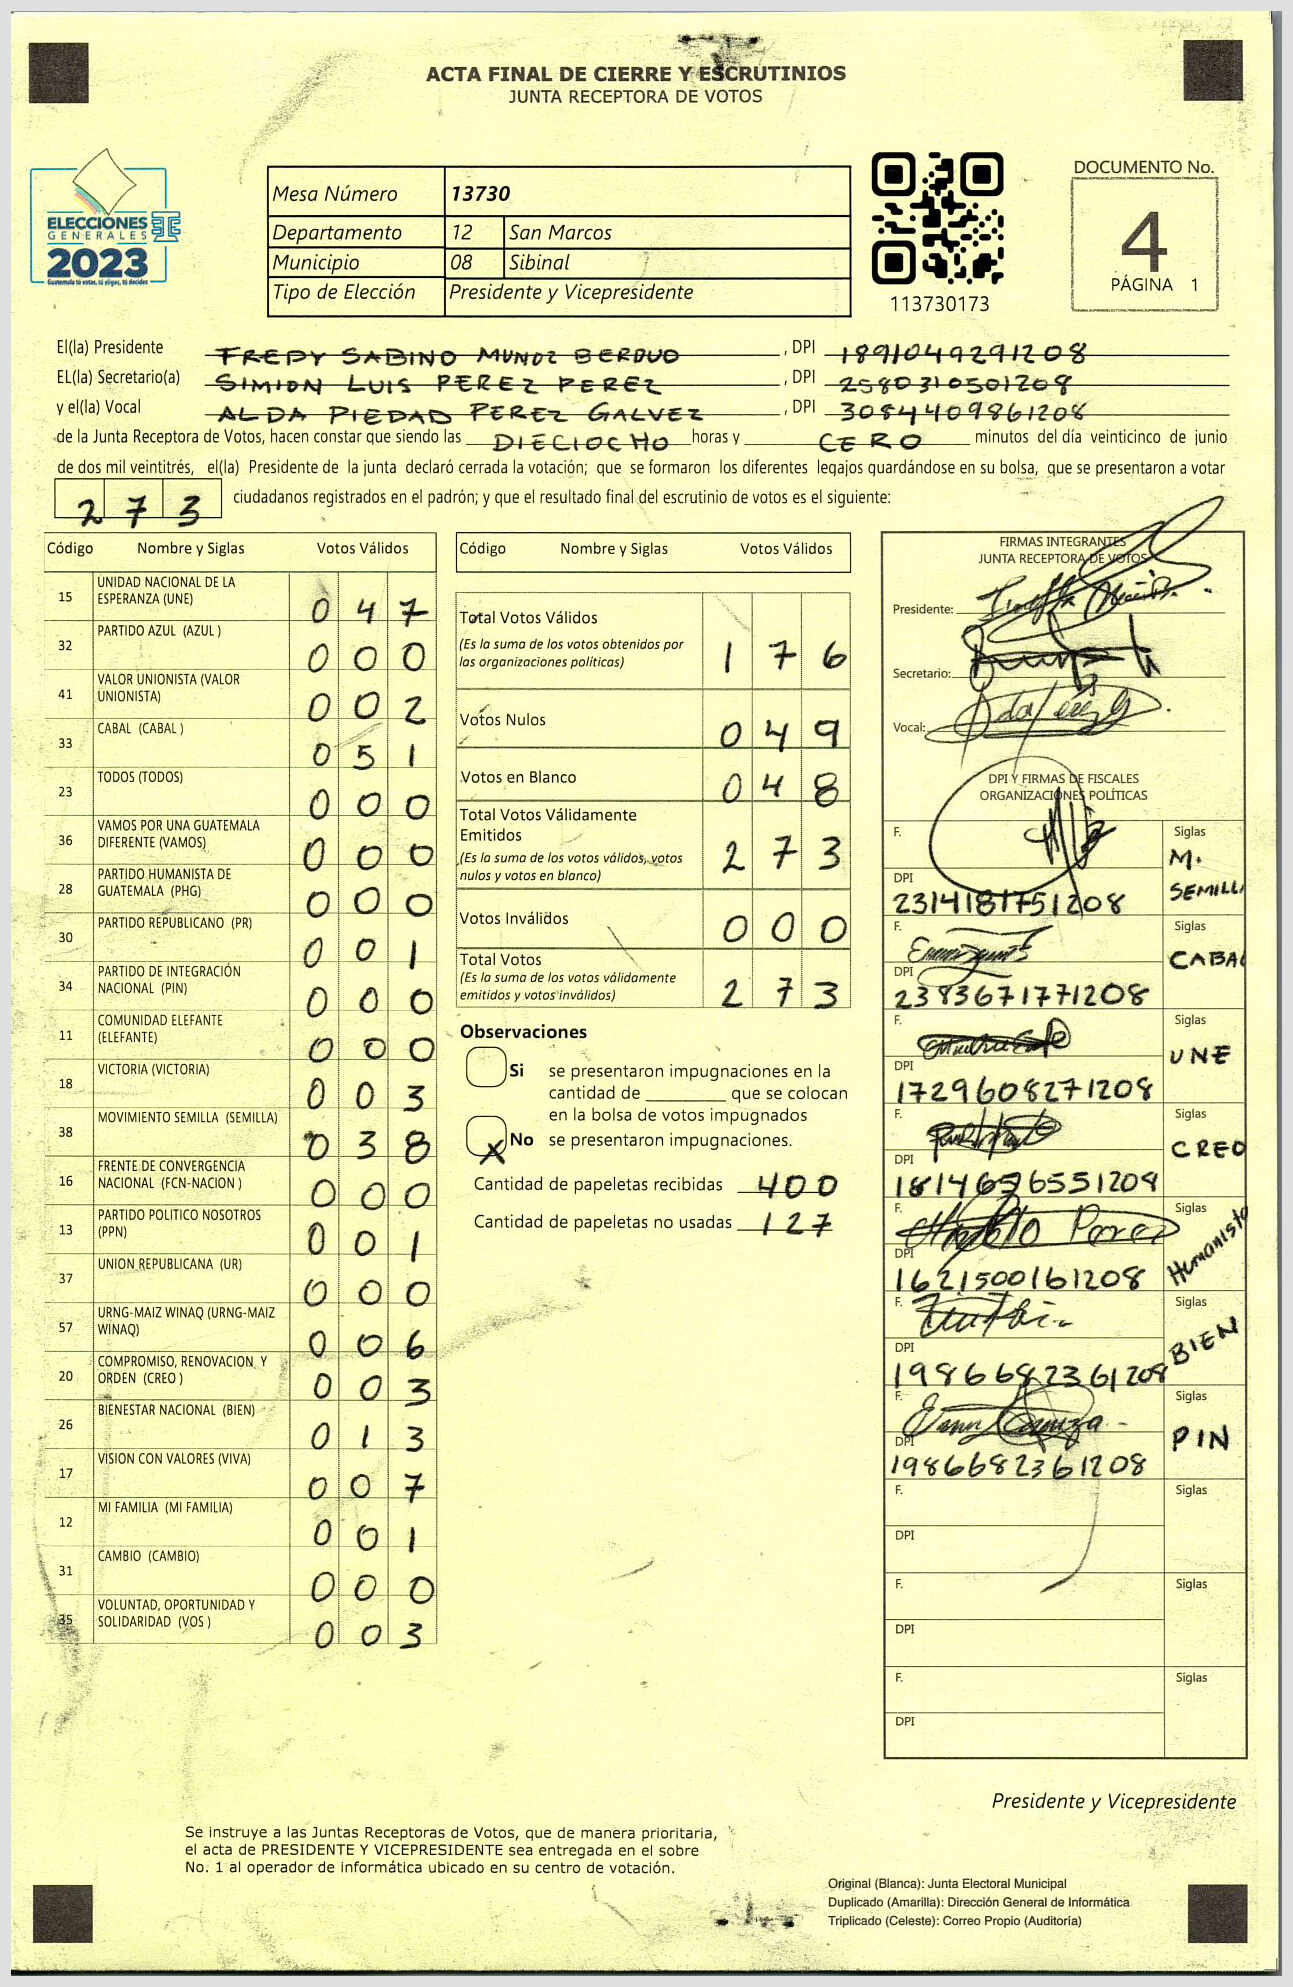 ACTA FINAL DE CIERRE Y ESCRUTINIOS
JUNTA RECEPTORA DE VOTOS
ELECCIONES
GENERALES
2023
Guatemala tú votas, tú eliges, tú decides
Mesa Número 13730
Departamento 12 San Marcos
Municipio 08 Sibinal
Tipo de Elección Presidente y Vicepresidente
113730173
DOCUMENTO No.
4
PÁGINA 1
El(la) Presidente FREDY SABINO MUÑOZ BERDUO, DPI 1891049291208
EL(la) Secretario(a) SIMION LUIS PEREZ PEREZ, DPI 2580310501208
y el(la) Vocal ALDA PIEDAD PEREZ GALVEZ, DPI 3084409861208
de la Junta Receptora de Votos, hacen constar que siendo las DIECIOCHO horas y CERO minutos del día veinticinco de junio
de dos mil veintitrés, el(la) Presidente de la junta declaró cerrada la votación; que se formaron los diferentes legajos guardándose en su bolsa, que se presentaron a votar
273 ciudadanos registrados en el padrón; y que el resultado final del escrutinio de votos es el siguiente:
Código Nombre y Siglas Votos Válidos
15 UNIDAD NACIONAL DE LA ESPERANZA (UNE) 047
32 PARTIDO AZUL (AZUL ) 000
41 VALOR UNIONISTA (VALOR UNIONISTA) 002
33 CABAL (CABAL ) 051
23 TODOS (TODOS) 000
36 VAMOS POR UNA GUATEMALA DIFERENTE (VAMOS) 000
28 PARTIDO HUMANISTA DE GUATEMALA (PHG) 000
30 PARTIDO REPUBLICANO (PR) 001
34 PARTIDO DE INTEGRACIÓN NACIONAL (PIN) 000
11 COMUNIDAD ELEFANTE (ELEFANTE) 000
18 VICTORIA (VICTORIA) 003
38 MOVIMIENTO SEMILLA (SEMILLA) 038
16 FRENTE DE CONVERGENCIA NACIONAL (FCN-NACION ) 000
13 PARTIDO POLITICO NOSOTROS (PPN) 001
37 UNION REPUBLICANA (UR) 000
57 URNG-MAIZ WINAQ (URNG-MAIZ WINAQ) 006
20 COMPROMISO, RENOVACION Y ORDEN (CREO ) 003
26 BIENESTAR NACIONAL (BIEN) 013
17 VISION CON VALORES (VIVA) 007
12 MI FAMILIA (MI FAMILIA) 001
31 CAMBIO (CAMBIO) 000
35 VOLUNTAD, OPORTUNIDAD Y SOLIDARIDAD (VOS ) 003
Código Nombre y Siglas Votos Válidos
Total Votos Válidos 176
(Es la suma de los votos obtenidos por
las organizaciones políticas)
Votos Nulos 049
Votos en Blanco 048
Total Votos Válidamente
Emitidos 273
(Es la suma de los votos válidos, votos
nulos y votos en blanco)
Votos Inválidos 000
Total Votos 273
(Es la suma de los votos válidamente
emitidos y votos inválidos)
Observaciones
Si se presentaron impugnaciones en la
cantidad de ________ que se colocan
en la bolsa de votos impugnados
X No se presentaron impugnaciones.
Cantidad de papeletas recibidas 400
Cantidad de papeletas no usadas 127
FIRMAS INTEGRANTES
JUNTA RECEPTORA DE VOTOS
Presidente:
Secretario:
Vocal:
DPI Y FIRMAS DE FISCALES
ORGANIZACIONES POLÍTICAS
F. Siglas M. SEMILLA
DPI 2314181751208
F. Siglas CABAL
DPI 2383671771208
F. Siglas UNE
DPI 1729608271208
F. Siglas CREO
DPI 1814676551208
F. Siglas Humanista
DPI 1621500161208
F. Siglas BIEN
DPI 1986682361208
F. Siglas PIN
DPI 1986682361208
F. Siglas
DPI
F. Siglas
DPI
F. Siglas
DPI
Presidente y Vicepresidente
Se instruye a las Juntas Receptoras de Votos, que de manera prioritaria,
el acta de PRESIDENTE Y VICEPRESIDENTE sea entregada en el sobre
No. 1 al operador de informática ubicado en su centro de votación.
Original (Blanca): Junta Electoral Municipal
Duplicado (Amarilla): Dirección General de Informática
Triplicado (Celeste): Correo Propio (Auditoría)